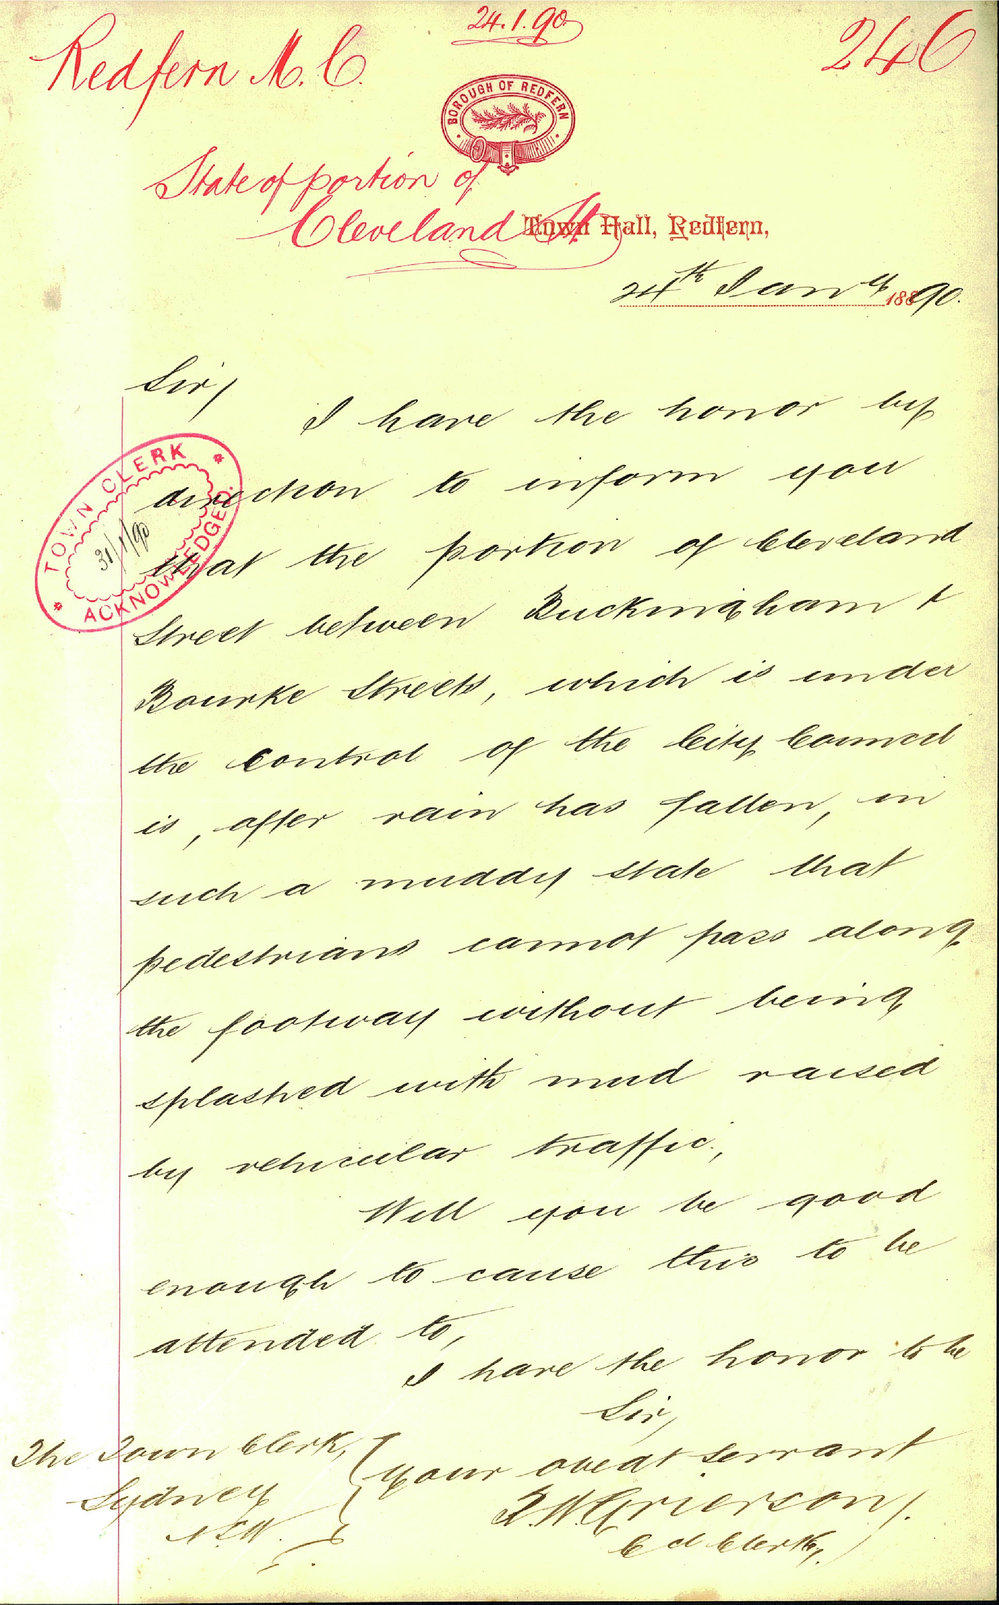 24.1.90
Redfern M. C.
246
BOROUGH OF REDFERN
State of portion of
Cleveland St
Town Hall, Redfern,
24th Jany 1890.
Sir,
I have the honor by
direction to inform you
that the portion of Cleveland
Street between Buckingham &
Bourke Streets, which is under
the control of the City Council
is, after rain has fallen, in
such a muddy state that
pedestrians cannot pass along
the footway without being
splashed with mud raised
by vehicular traffic,
Will you be good
enough to cause this to be
attended to,
I have the honor to be
Sir,
your obedt servant
Grierson
Cl Clerk,
The Town Clerk,
Sydney
N.S.W.
TOWN CLERK
31/1/90
ACKNOWLEDGED.